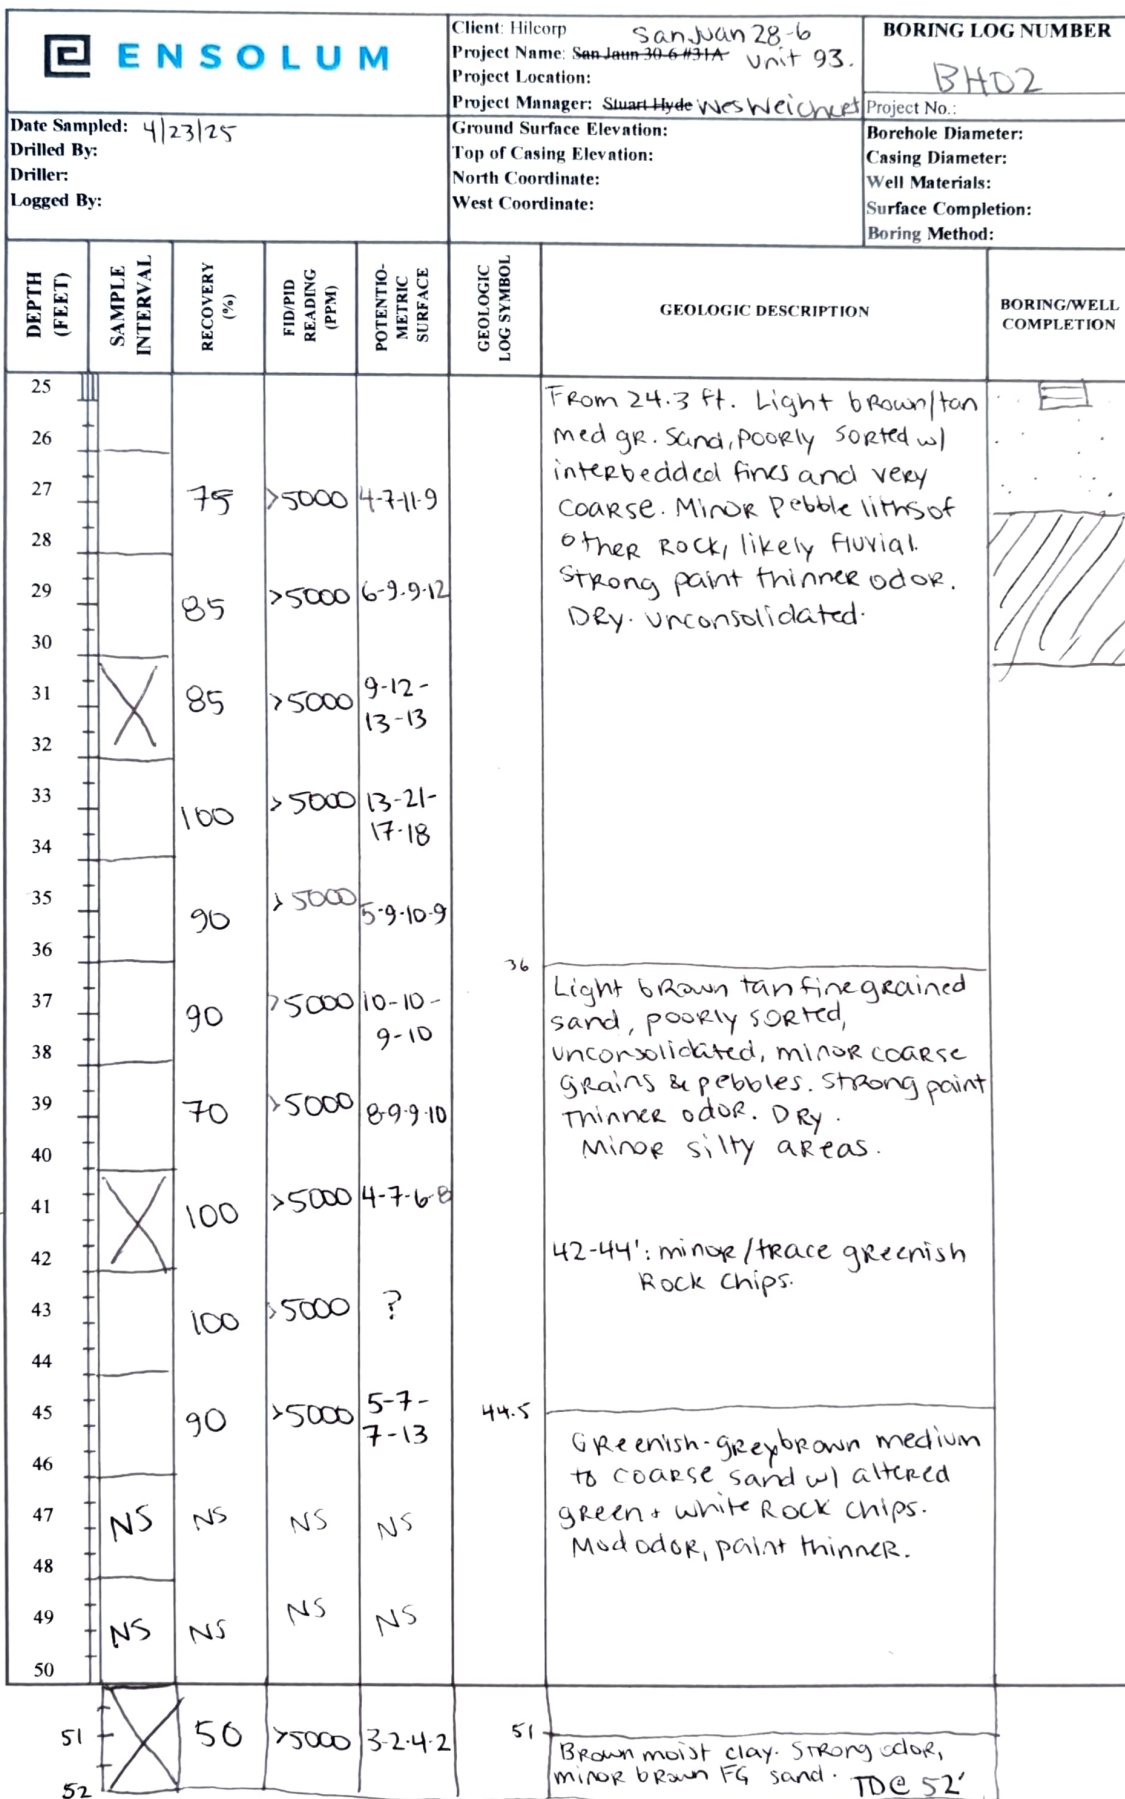 ENSOLUM
Client: Hilcorp
San Juan 28-6
Project Name: San Jaun 30-6 #31A Unit 93.
Project Location:
Project Manager: Stuart Hyde Wes Weichert
BORING LOG NUMBER
BH02
Project No.:
Date Sampled: 4/23/25
Drilled By:
Driller:
Logged By:
Ground Surface Elevation:
Top of Casing Elevation:
North Coordinate:
West Coordinate:
Borehole Diameter:
Casing Diameter:
Well Materials:
Surface Completion:
Boring Method:
DEPTH
(FEET)
SAMPLE
INTERVAL
RECOVERY
(%)
FID/PID
READING
(PPM)
POTENTIO-
METRIC
SURFACE
GEOLOGIC
LOG SYMBOL
GEOLOGIC DESCRIPTION
BORING/WELL
COMPLETION
25
From 24.3 ft. Light brown/tan
26
med gr. Sand, poorly sorted w/
interbedded fines and very
27
75 >5000 4-7-11-9
coarse. Minor Pebble liths of
28
other Rock, likely fluvial.
29
85 >5000 6-9-9-12
Strong paint thinner odor.
30
Dry. unconsolidated.
31
85 >5000 9-12-
13-13
32
33
100 >5000 13-21-
17-18
34
35
90 >5000 5-9-10-9
36
36
Light brown tan fine grained
37
90 >5000 10-10-
9-10
sand, poorly sorted,
38
unconsolidated, minor coarse
grains & pebbles. Strong paint
39
70 >5000 8-9-9-10
thinner odor. Dry.
40
Minor silty areas.
41
100 >5000 4-7-6-8
42
42-44': minor/trace greenish
Rock chips.
43
100 >5000 ?
44
45
90 >5000 5-7-
7-13
44.5
46
Greenish-grey brown medium
to coarse sand w/ altered
47
NS NS NS NS
green + white Rock chips.
48
Mod odor, paint thinner.
49
NS NS NS NS
50
51
50 >5000 3-2-4-2
51
Brown moist clay. Strong odor,
52
minor brown FG sand. TD@ 52'